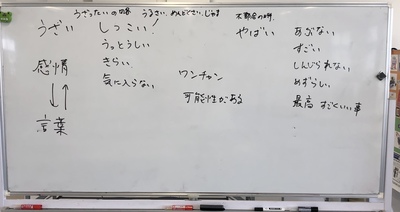 うざったいの略 うるさい、めんどくさい、じゃま
うざい しつこい
うっとうしい
きらい
気に入らない
感情
言葉
ワンチャン
可能性がある
不都合の時
やばい あぶない
すごい
しんじられない
めずらしい
最高 すごくいい事